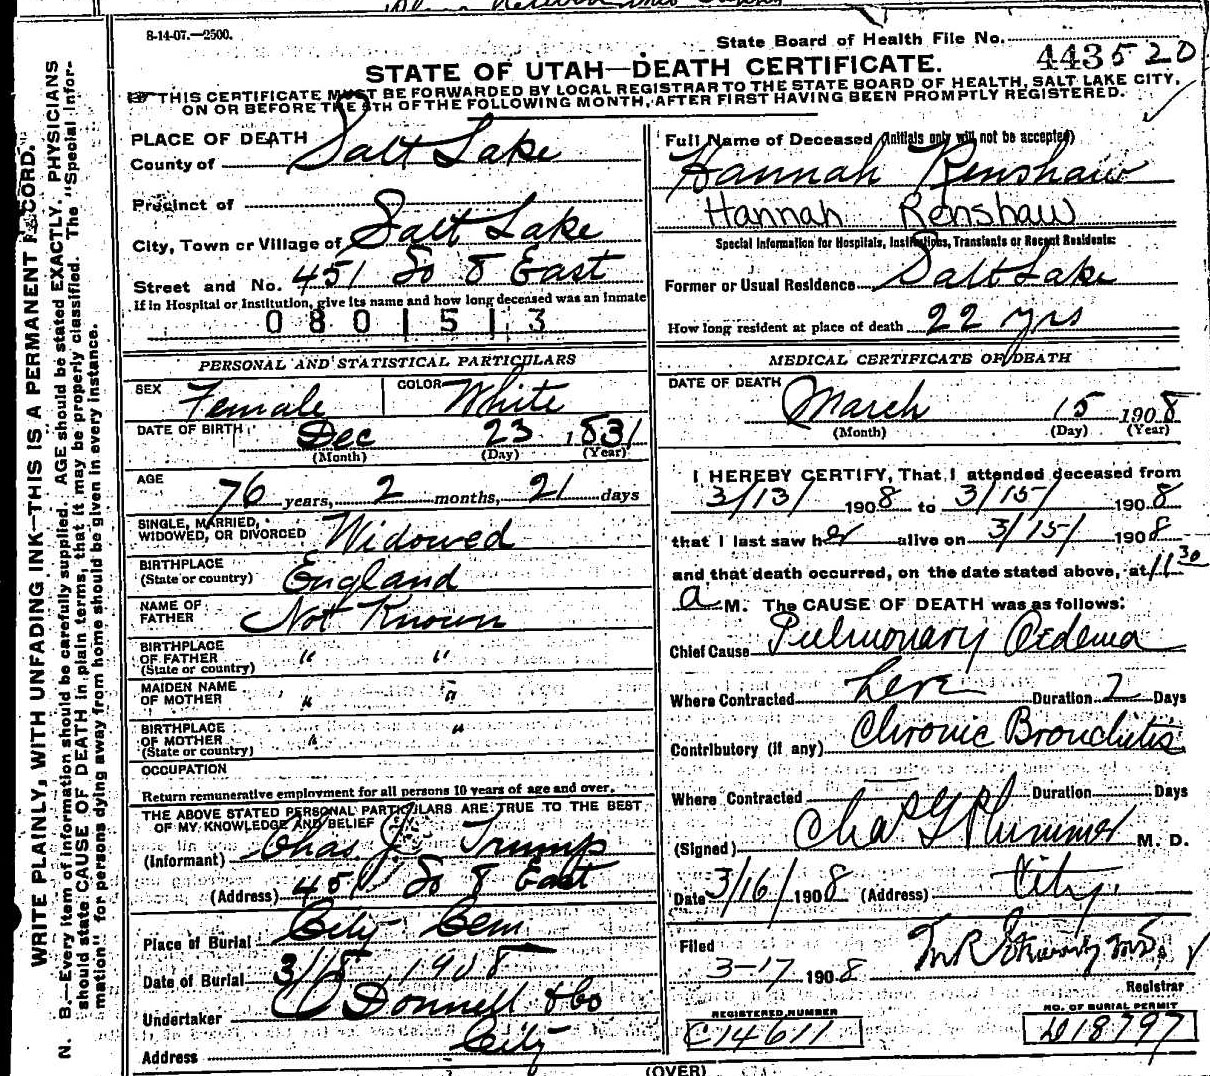 8-14-07.—2500.
State Board of Health File No.
443520
STATE OF UTAH—DEATH CERTIFICATE.
THIS CERTIFICATE MUST BE FORWARDED BY LOCAL REGISTRAR TO THE STATE BOARD OF HEALTH, SALT LAKE CITY,
ON OR BEFORE THE 5TH OF THE FOLLOWING MONTH, AFTER FIRST HAVING BEEN PROMPTLY REGISTERED.
WRITE PLAINLY, WITH UNFADING INK—THIS IS A PERMANENT RECORD.
N. B.—Every item of information should be carefully supplied. AGE should be stated EXACTLY. PHYSICIANS
should state CAUSE OF DEATH in plain terms, that it may be properly classified. The "Special Infor-
mation" for persons dying away from home should be given in every instance.
PLACE OF DEATH
County of Salt Lake
Precinct of
City, Town or Village of Salt Lake
Street and No. 451 So 8 East
If in Hospital or Institution, give its name and how long deceased was an inmate
0801513
PERSONAL AND STATISTICAL PARTICULARS
SEX Female COLOR White
DATE OF BIRTH Dec 23 1831
(Month) (Day) (Year)
AGE 76 years, 2 months, 21 days
SINGLE, MARRIED,
WIDOWED, OR DIVORCED Widowed
BIRTHPLACE
(State or country) England
NAME OF
FATHER Not Known
BIRTHPLACE
OF FATHER " "
(State or country)
MAIDEN NAME
OF MOTHER " "
BIRTHPLACE
OF MOTHER " "
(State or country)
OCCUPATION
Return remunerative employment for all persons 10 years of age and over.
THE ABOVE STATED PERSONAL PARTICULARS ARE TRUE TO THE BEST
OF MY KNOWLEDGE AND BELIEF
(Informant) Chas J. Trump
(Address) 451 So 8 East
Place of Burial City Cem
Date of Burial 3/18 1908
Undertaker O'Donnell & Co
Address City
Full Name of Deceased (Initials only will not be accepted)
Hannah Renshaw
Hannah Renshaw
Special Information for Hospitals, Institutions, Transients or Recent Residents:
Former or Usual Residence Salt Lake
How long resident at place of death 22 yrs
MEDICAL CERTIFICATE OF DEATH
DATE OF DEATH March 15 1908
(Month) (Day) (Year)
I HEREBY CERTIFY, That I attended deceased from
3/13/ 1908 to 3/15/ 1908
that I last saw her alive on 3/15/ 1908
and that death occurred, on the date stated above, at 11 30
a M. The CAUSE OF DEATH was as follows:
Chief Cause Pulmonary Oedema
Where Contracted here Duration 2 Days
Contributory (if any) Chronic Bronchitis
Where Contracted Duration Days
(Signed) Chas G Plummer M. D.
Date 3/16/ 1908 (Address) City.
Filed
3-17 1908
Registrar
REGISTERED NUMBER
C14611
NO. OF BURIAL PERMIT
D18797
(OVER)